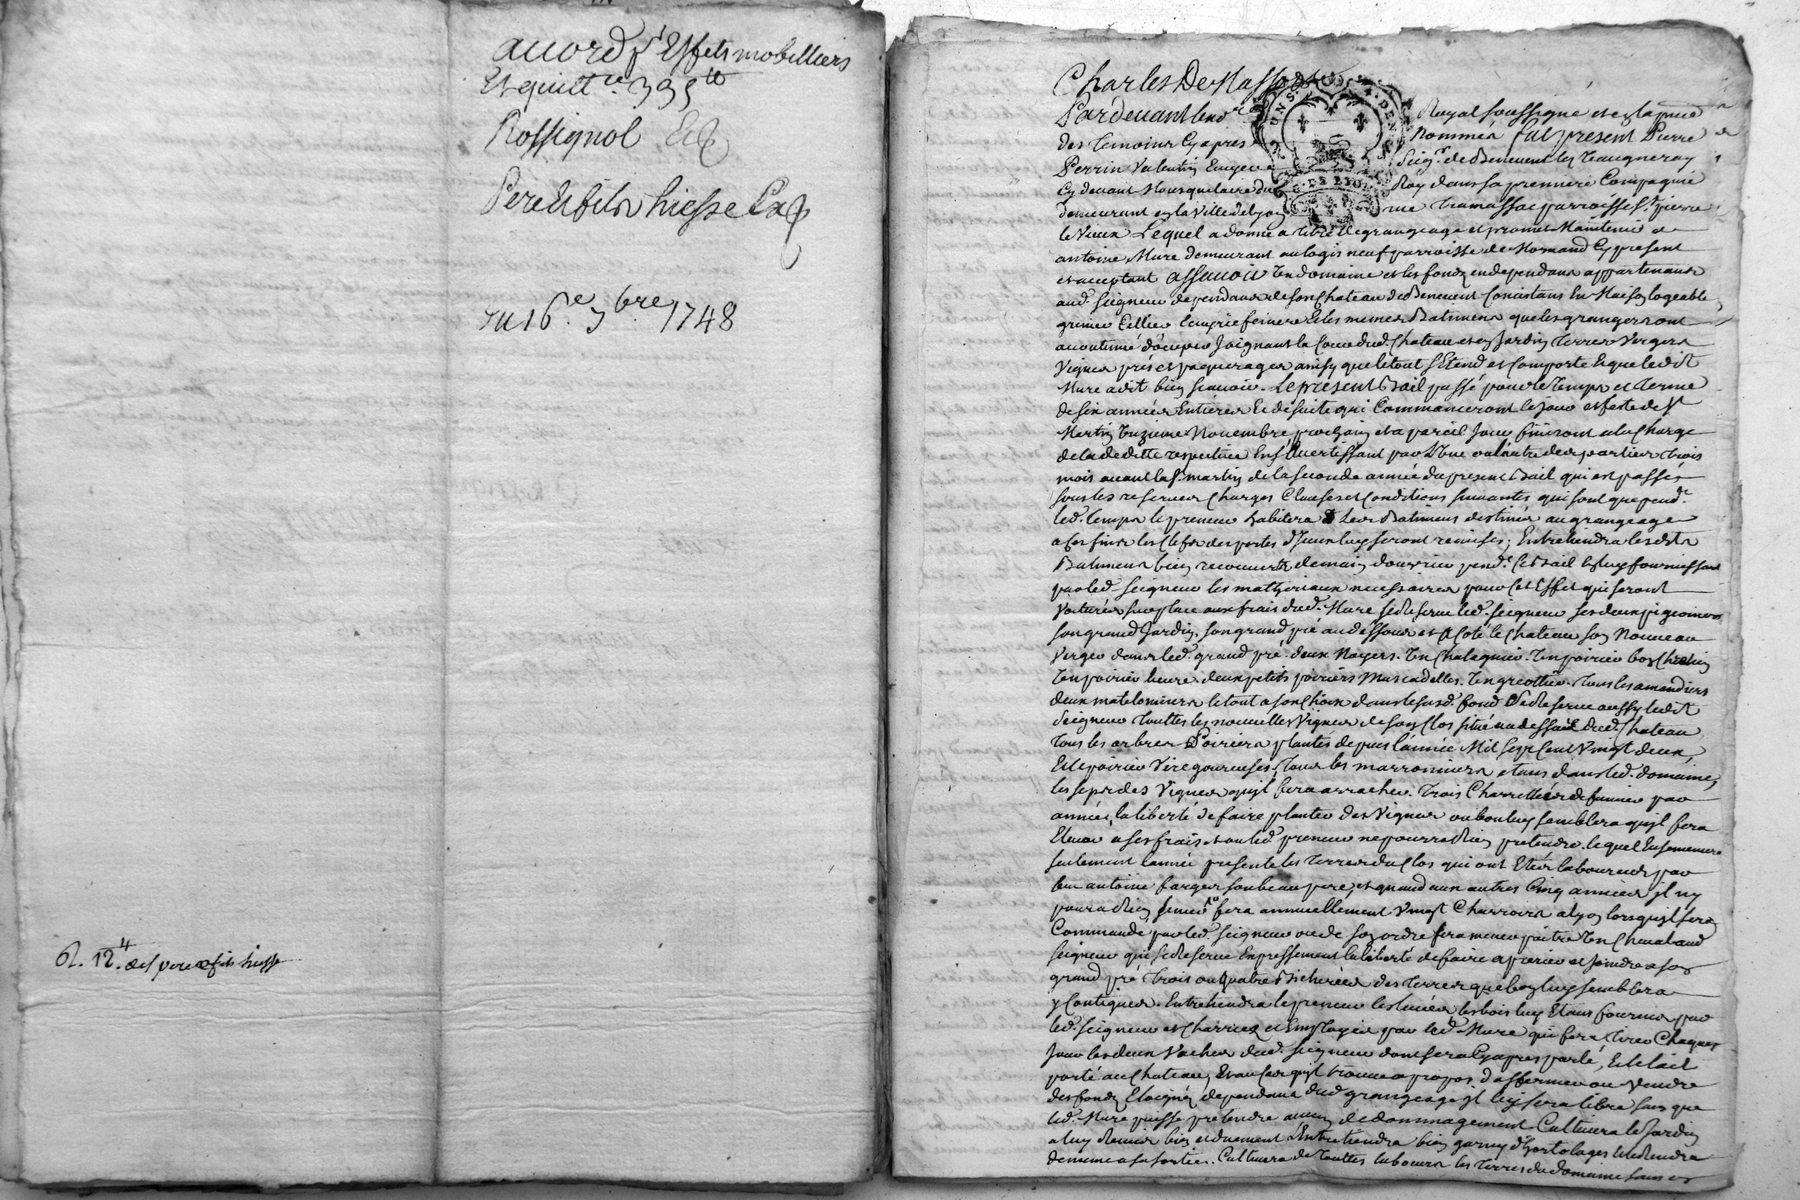 accord pr Effets mobilliers
Et quittce 395tt
Rossignol
Pere et fils hiesse
Du 16e 7bre 1748
6. 12. des pere & fils hiesse
Charles De Masso
Pardevant le no.re Royal soussigné et en la pnce
des temoins cy apres Nommés fut present Pierre
Perrin Valentin Seigr. de Benevent les Vaugneray
cy devant Mousquetaire du Roy dans sa premiere Compagnie
demeurant en la Ville de Lyon rue tramassac parroisse St. pierre
le Vieux Lequel a donné a titre de grangeage et promet Maintenir a
antoine Mure demeurant au logis neuf parroisse de Mornand cy present
et acceptant assavoir Un domaine et les fonds en dependans appartenans
aud. seigneur dependans de son chateau de Benevent Consistans En Maison logeable
grenier Cellier Ecurie feniere Et les mêmes Batimens que les grangers ont
accoutumé d'occuper Joignant la Cour dud. Chateau et en Jardin Terres Vergers
Vignes prés et paquerages ainsy que le tout s'Etend et Comporte Et que led.it
Mure a dit bien sçavoir. Le present Bail passé pour le temps et terme
de six années Entieres Et de suite qui Commanceront le jour et feste de St
Martin Onzieme Novembre prochain et a pareil Jour finiront a la Charge
de la deditte respective En s'avertissant par L'Une ou l'autre des parties trois
mois avant la St. martin de la seconde année du present Bail qui est passé
sous les reserves Charges Clauses et Conditions suivantes qui sont que pend.t
led. temps le preneur habitera Les Batimens destinés au grangeage
a ces fins les Clefs des portes d'Iceux luy seront remises; Entretiendra lesdits
Batimens bien recouverts de main d'ouvrier pend.t ce Bail Et luy fournissant
par led. seigneur les matheriaux necessaires pour cet Effet qui seront
voiturés sur place aux frais dud. Mure se reserve led. seigneur ses deux pigeonniers
son grand Jardin. son grand pré au dessous et a Coté le Chateau son Nouveau
Verger dans led. grand pré. deux Noyers. Un Chatagnier. Un poirier bon Chretien
Un poirier beure. deux petits poiriers Muscadelles. Un griottier. tous les amandiers
deux mate lonniers le tout a son Choix dans le susd. fond Se Reserve aussy led.it
Seigneur touttes les nouvelles Vignes de son Clos situé au dessous dud. Chateau
tous les arbres Poiriers plantés depuis l'année Mil Sept Cent Vingt deux,
Et le poirier Viregoureuses, tous les marronniers etans dans led. domaine,
les seps des Vignes qu'il fera arracher. trois Charrettées de fumier par
années, la liberté de faire planter des Vignes ou bon luy semblera qu'il fera
Elever a ses frais et ou led. preneur ne pourra Rien pretendre. lequel Ensemencera
seulement l'année presente les terres du Clos qui ont Etés labourées par
feu antoine farge son beau pere, et quand aux autres Cinq années il n'y
pourra Rien semer fera annuellement Vingt Charrois a Lyon lorsqu'il sera
Commandé par led. seigneur ou de son ordre fera mener paitre Un Cheval aud.
seigneur qui se Reserve Expressement la liberté de faire a prerier et joindre a son
grand pré trois ou quatre Bicherées des terres que bon luy semblera
y Contigues. Entretiendra le preneur les haies les bois luy Etans fournis par
led. seigneur et Charriez et Employés par led. Mure qui fera tirer Chaque
Jour les deux Vaches dud. seigneur dont sera Cy apres parlé, Et le lait
porté au Chateau, Et au Cas qu'il trouve a propos d'affermer ou vendre
des fonds Eloignés dependans dud. grangeage il luy sera libre sans que
led. Mure puisse pretendre aucun dedommagement Cultivera le Jardin
a luy Remis bien et duement l'Entretiendra bien garny d'hortolages et le Rendra
de même a sa sortie. Cultivera de touttes labours les terres du domaine sans en